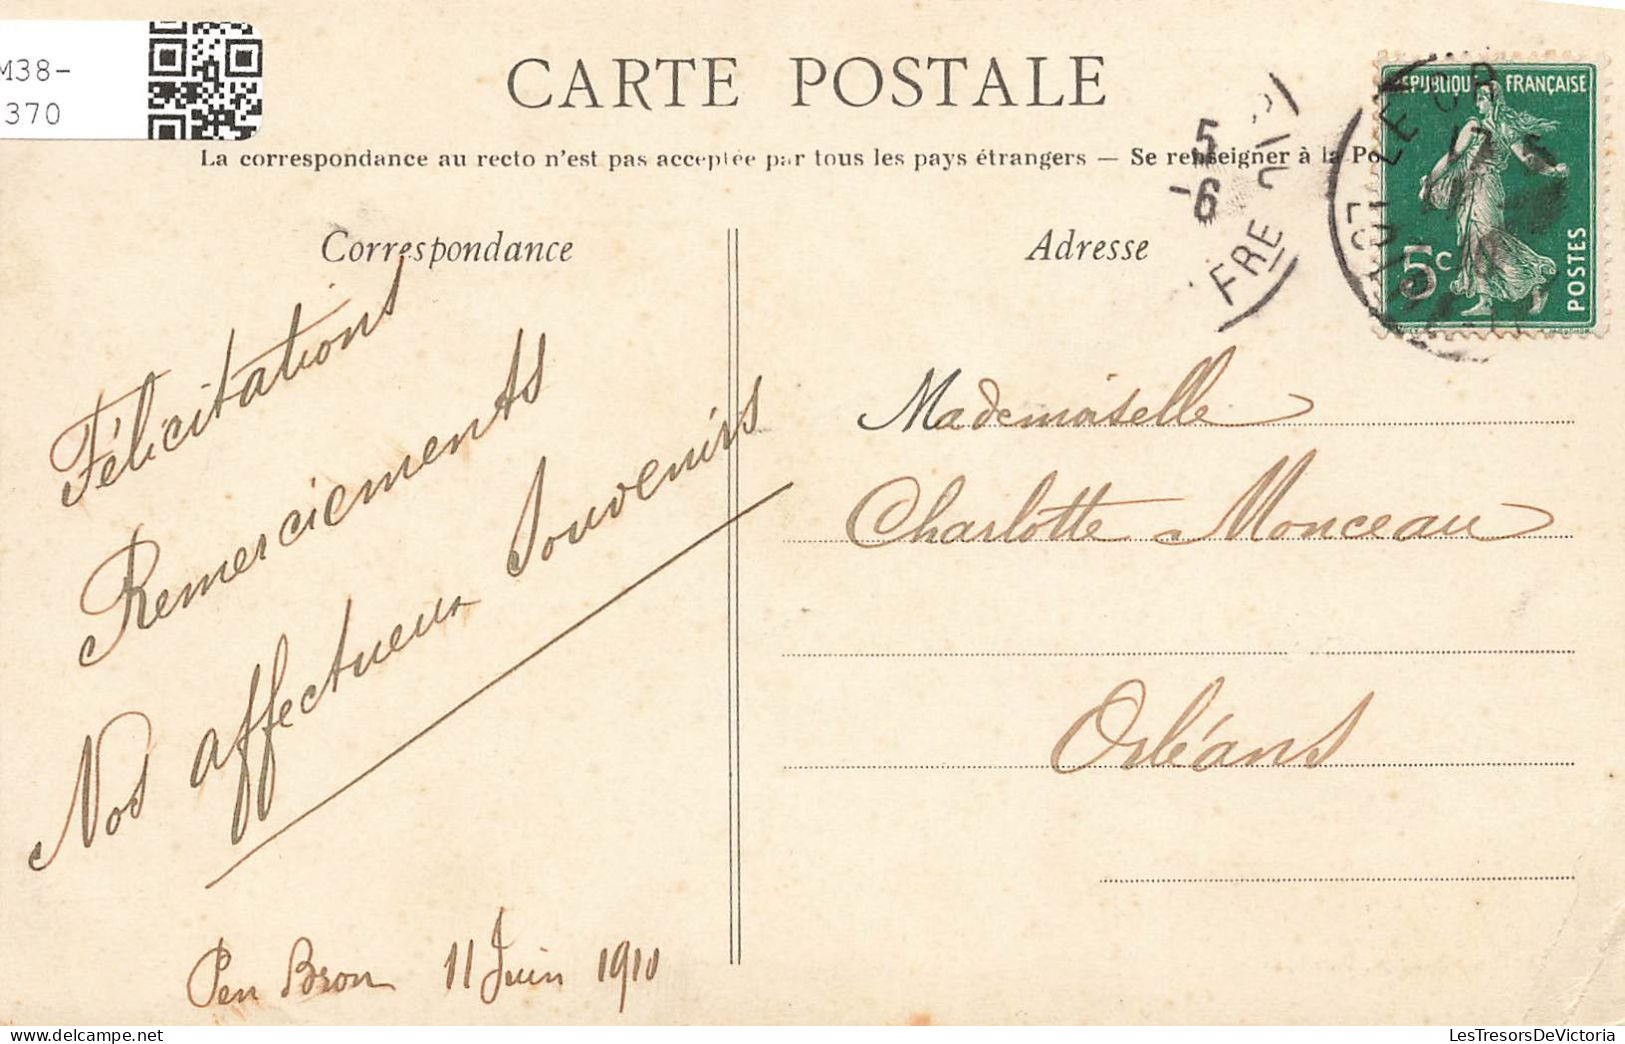 M38-
370
CARTE POSTALE
La correspondance au recto n'est pas acceptée par tous les pays étrangers — Se renseigner à la Po
Correspondance
Adresse
5
-6
FRE
REPUBLIQUE FRANÇAISE
17 5
5c
POSTES
Félicitations
Remerciements
Nos affectueux Souvenirs
Pen Bron 11 Juin 1910
Mademoiselle
Charlotte Monceau
Orléans
LesTresorsDeVictoria